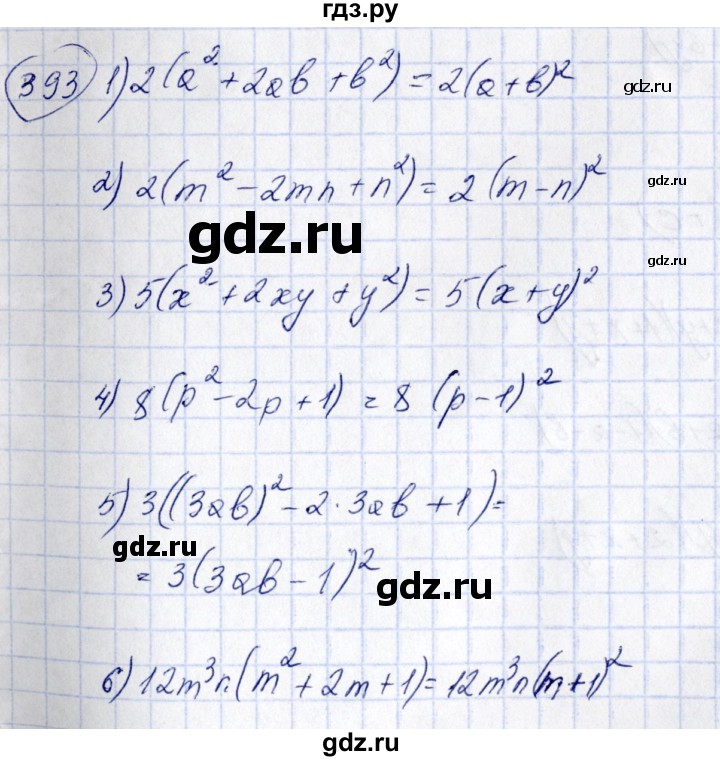 гдз.ру
393 1) 2(a² + 2ab + b²) = 2(a+b)²
gdz.ru
2) 2(m² - 2mn + n²) = 2(m-n)²
gdz.ru
gdz.ru
gdz.ru
3) 5(x² + 2xy + y²) = 5(x+y)²
4) 8(p² - 2p + 1) = 8(p-1)²
5) 3((3ab)² - 2·3ab + 1) =
gdz.ru
= 3(3ab - 1)²
gdz.ru
6) 12m³n(m² + 2m + 1) = 12m³n(m+1)²
gdz.ru